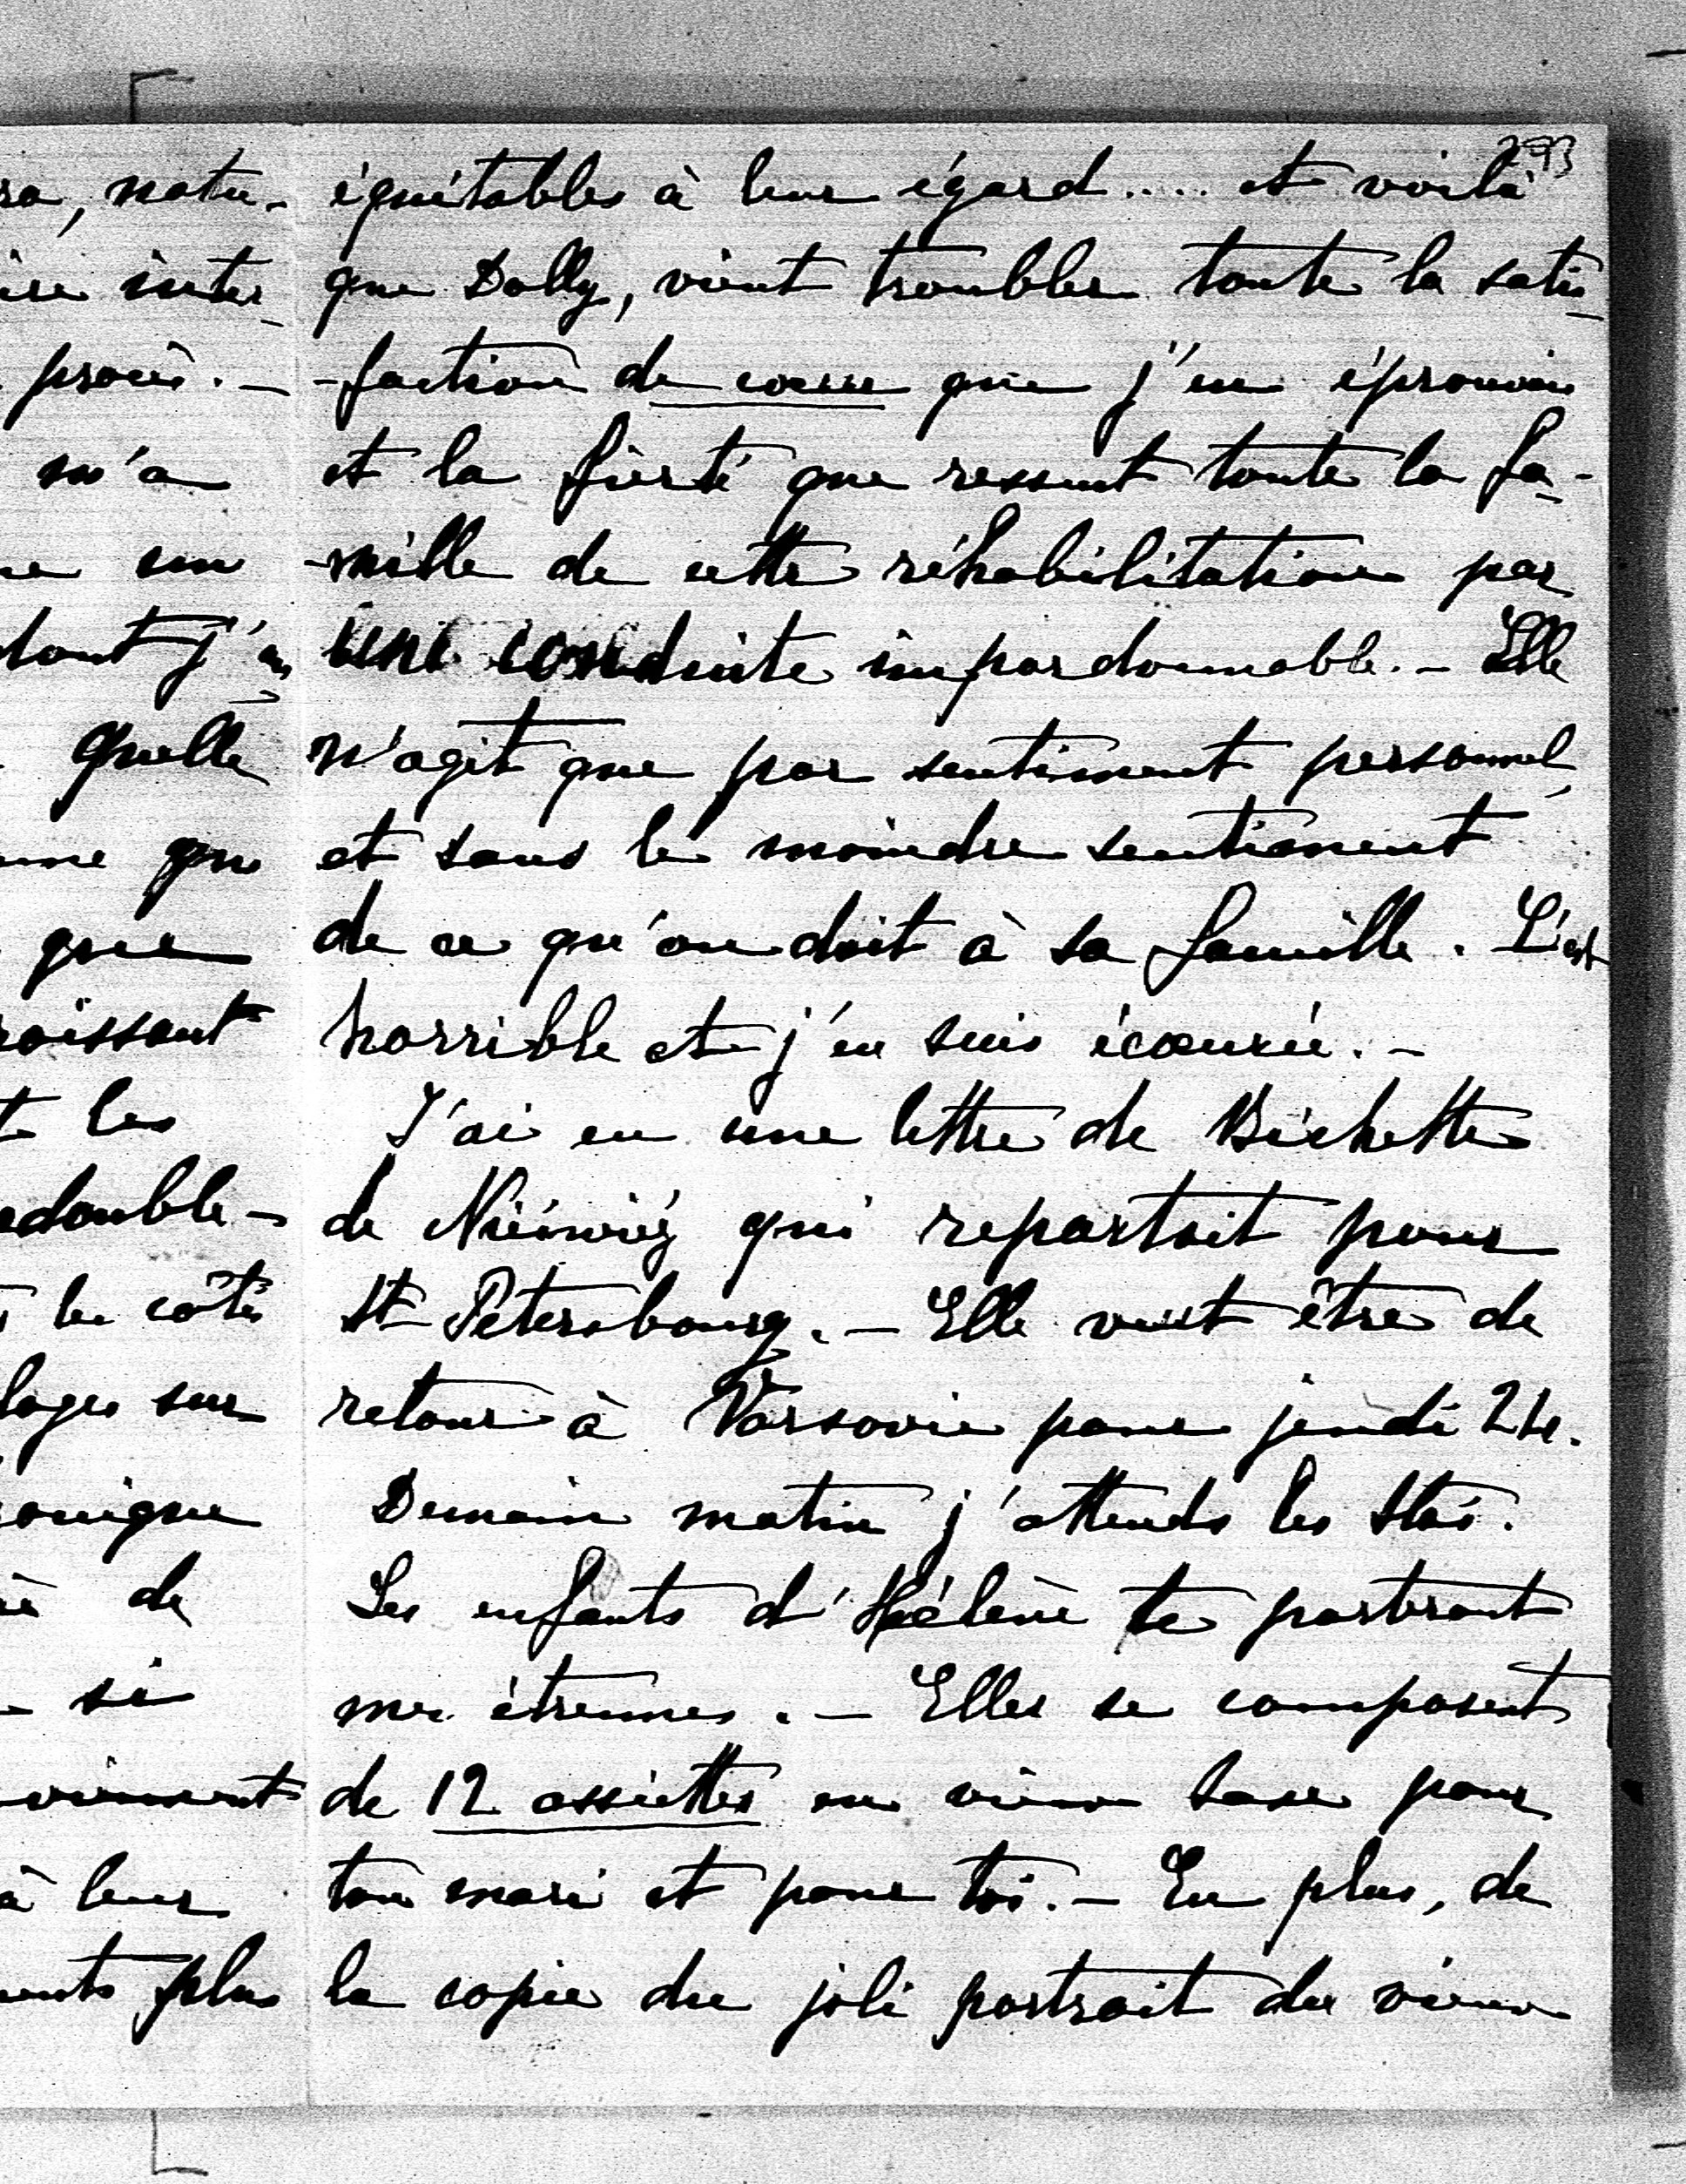 293
ra, natu-
ire inter-
procès. -
m'a
un
dont j'en
quelle
que
que
roissant
t les
edouble-
les côtés
loges sur
ronique
de
si
viennent
à leur
ents plus
équitables à leur égard..... et voilà
que Dolly, vient troubler toute la satis-
-faction de coeur que j'en éprouvais
et la fierté que ressent toute la fa-
-mille de cette réhabilitation par
une conduite impardonnable. - Elle
n'agit que par sentiment personnel,
et sans le moindre sentiment
de ce qu'on doit à sa famille. C'est
horrible et j'en suis écoeurée. -
J'ai eu une lettre de Bichette
de Niéświéz qui repartait pour
St Pétersbourg. - Elle veut être de
retour à Varsovie pour jeudi 24.
Demain matin j'attends les Stas.
Les enfants d'Hélène te porteront
mes étrennes. - Elles se composent
de 12 assiettes en vieux Saxe pour
ton mari et pour toi. - En plus, de
la copie du joli portrait du vieux